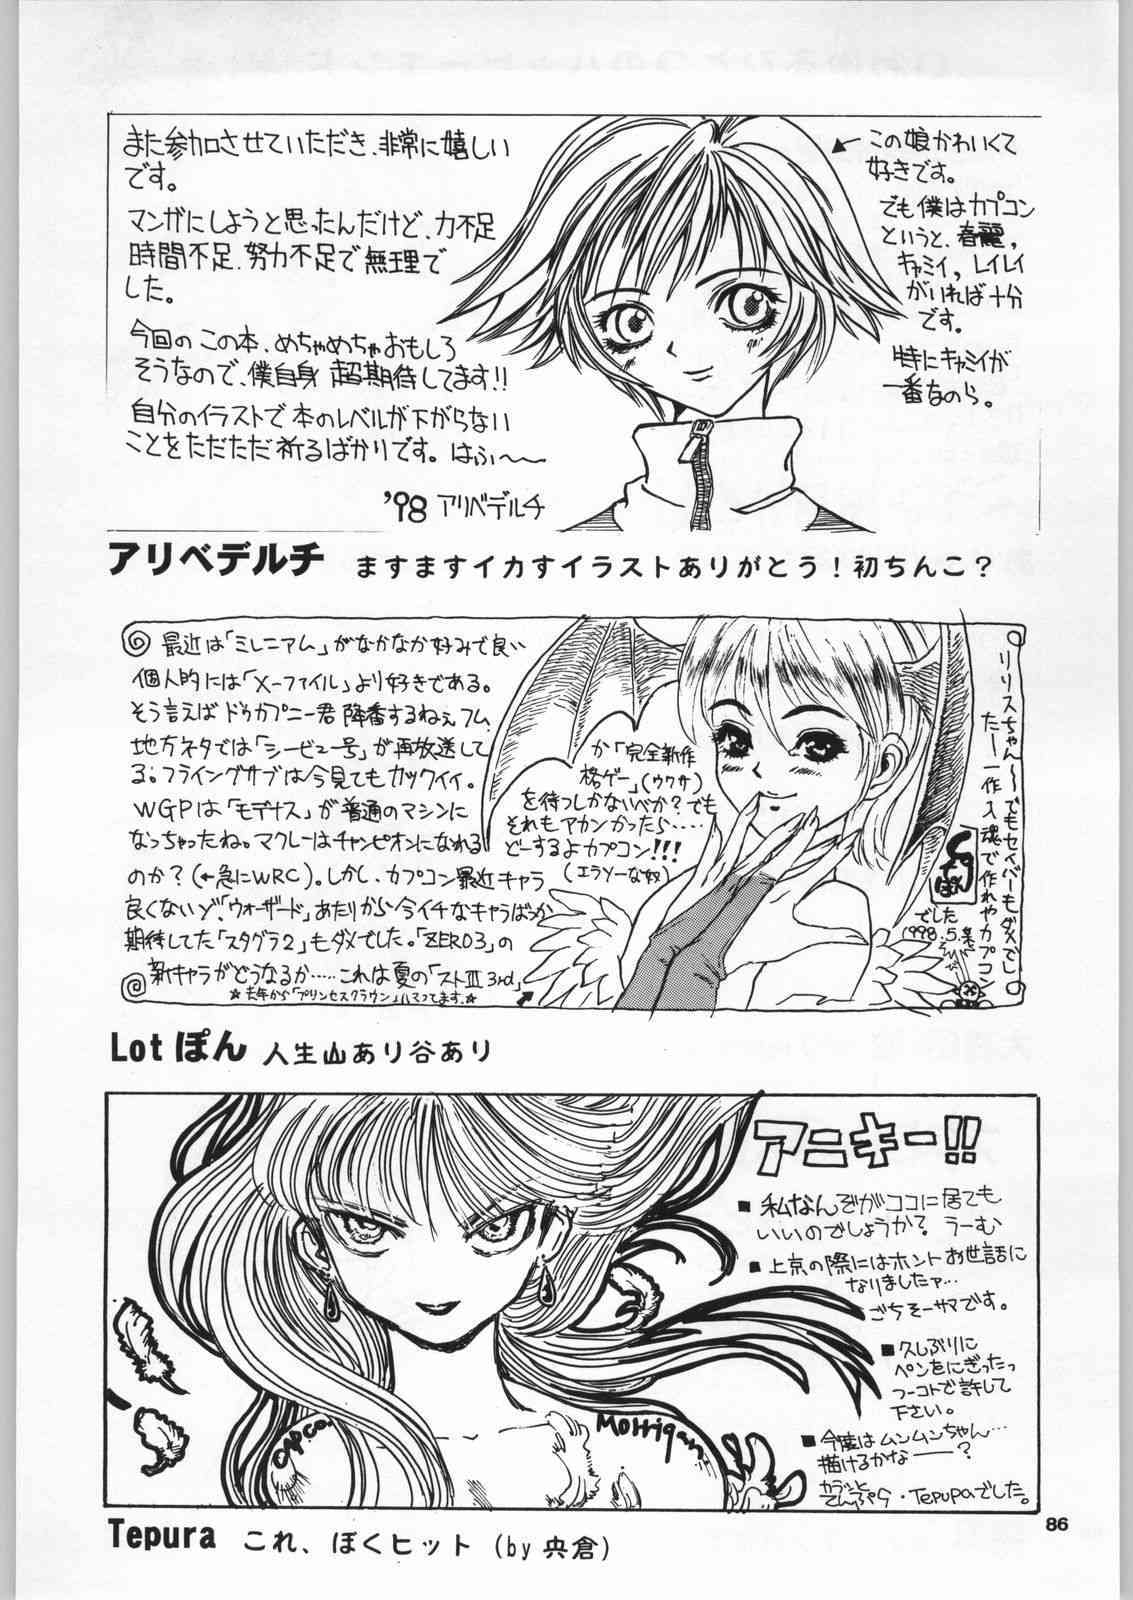 また参加させていただき、非常に嬉しい
です。
マンガにしようと思ったんだけど、力不足
時間不足、努力不足で無理で
した。
今回の この本、めちゃめちゃおもしろ
そうなので、僕自身 超期待してます!!
自分のイラストで 本のレベルが下がらない
ことをただただ祈るばかりです。はふ〜〜
'98 アリベデルチ
←この娘かわいくて
好きです。
でも僕はカプコン
というと、春麗,
キャミィ, レイレイ
がいれば十分
です。
特にキャミィが
一番なのら。
アリベデルチ ますますイカすイラストありがとう!初ちんこ?
最近は「ミレニアム」がなかなか好みで良い
個人的には「X-ファイル」より好きである。
そう言えばドゥカプニー君 降番するねぇフム
地方ネタでは「シービュー号」が再放送して
る。フライングサブは今見てもカックイイ。
WGPは「モデナス」が普通のマシンに
なっちゃったね。マクレーはチャンピオンになれる
のか?(←急にWRC)。しかし、カプコン最近キャラ
良くないゾ、「ウォーザード」あたりから今イチなキャラばっか
期待してた「スタグラ2」もダメでした。「ZERO3」の
新キャラがどうなるか……これは夏の「ストⅢ 3rd」
☆去年から「プリンセスクラウン」ハマってます。☆
か「完全新作
格ゲー」(ウワサ)
を待つしかないべか?でも
それもアカンかったら……
どーするよカプコン!!!
(エラソーな奴)
リリスちゃん〜〜でもセイバーもダメでし
たー一作入魂で作れやカプコン
ぽん
でした
1998.5.
Lotぽん 人生山あり谷あり
アニキー!!
■私なんぞがココに居ても
いいのでしょうか? うーむ
■上京の際にはホントお世話に
なりましたァ…
ごちそーサマです。
■久しぶりに
ペンをにぎったっ
つーコトで許して
下さい。
■今度はムンムンちゃん…
描けるかな――?
てんぷら・Tepuraでした。
CAPCO.
Morrigan.
Tepura これ、ぼくヒット (by 央倉)
86